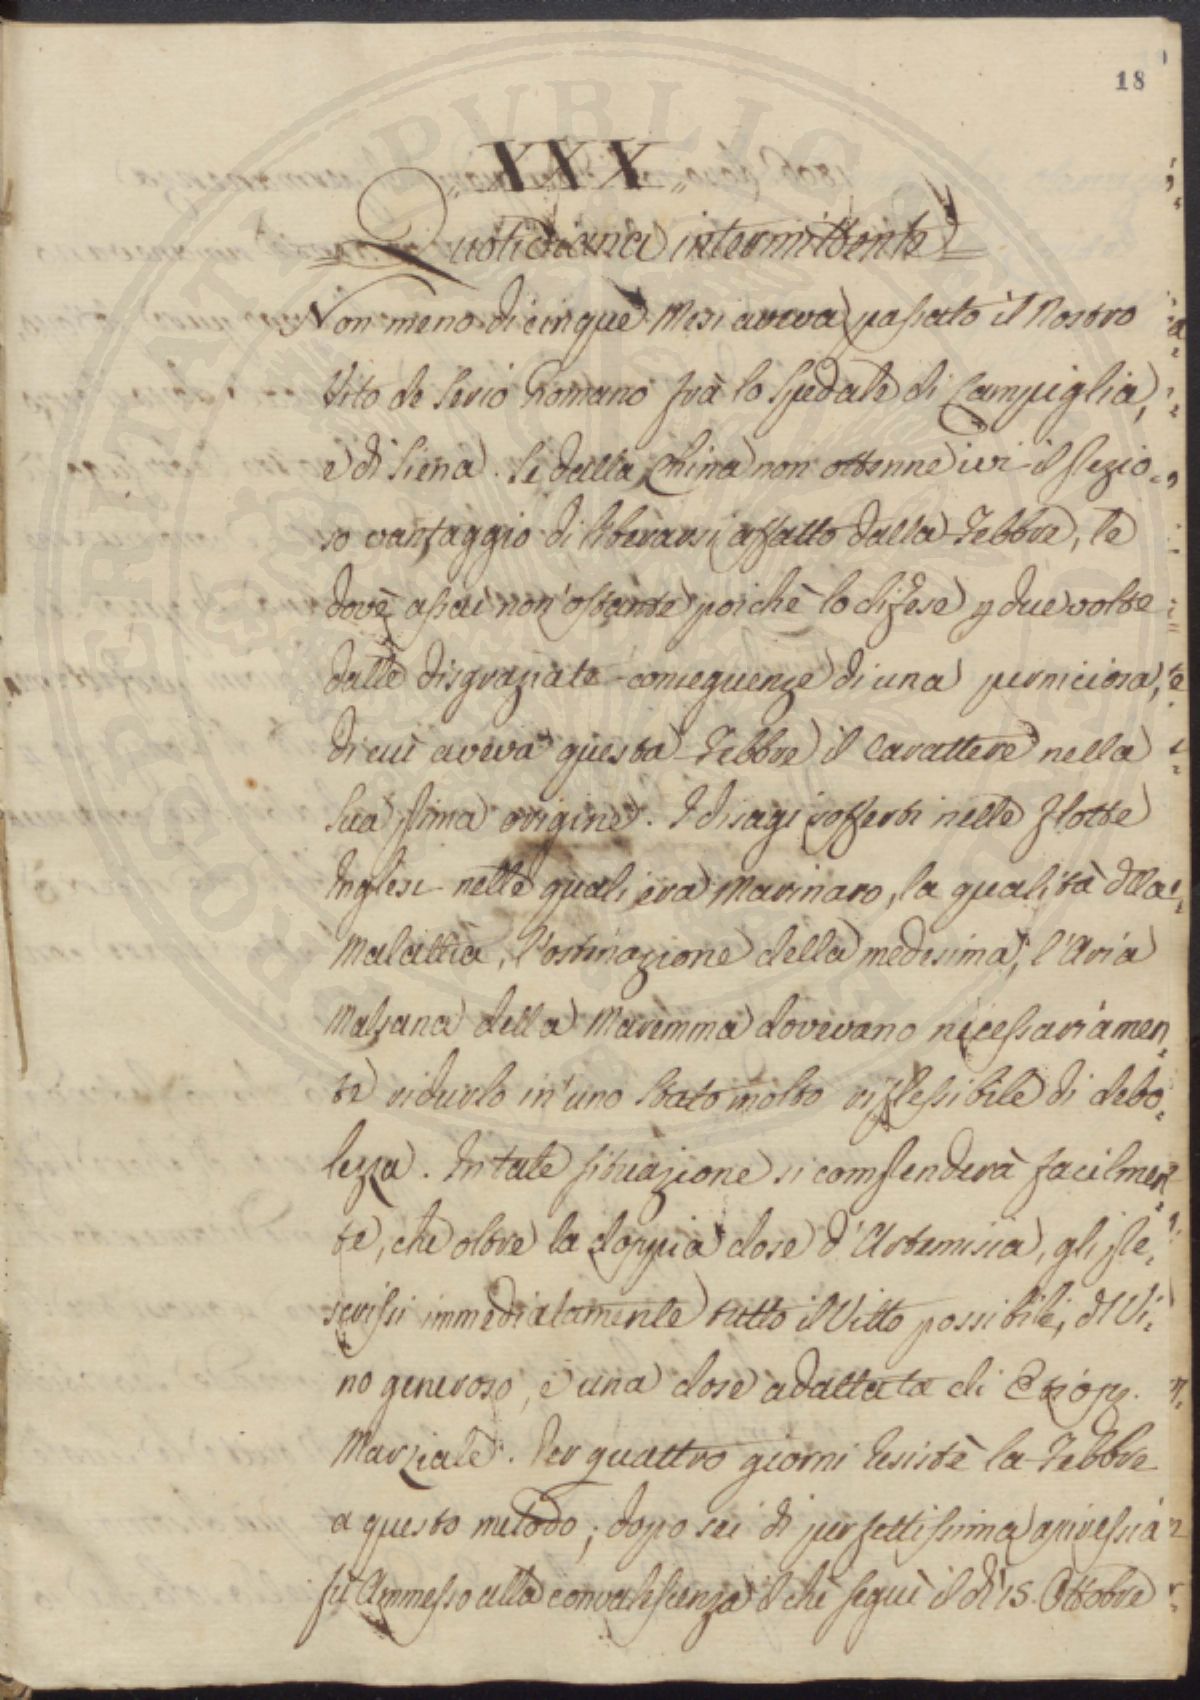 18
XXX
Quotidiana intermittente
Non meno di cinque Mesi aveva passato il Nostro
Vito de Serio Romano frà lo Spedale di Campiglia,
e di Siena. Se dalla China non ottenne ivi il spezio-
so vantaggio di liberarsi affatto dalla Febbre, le
dovè assai non'ostante poichè lo difese p due volte
dalle disgraziate conseguenze di una perniciosa,
di cui aveva questa Febbre il Carattere nella
sua prima origine. I disagi sofferti nelle Flotte
Inglesi nelle quali era Marinaro, la qualità dlla
Malattia, l'ostinazione della medesima, l'Aria
Malsana della Maremma dovevano necessariamen-
te ridurlo in'uno Stato molto riflessibile di debo-
lezza. In tale situazione si comprenderà facilmen-
te, che oltre la doppia dose d'Artemisia, gli pre-
scrissi immediatamente tutto il Vitto possibile, dl Vi-
no generoso, e una dose adattata di Etiop.
Marziale. Per quattro giorni resistè la Febbre
a questo metodo; dopo sei di perfettissima apiressia
fù Ammesso alla convalescenza il chè seguì il dì 15. Ottobre